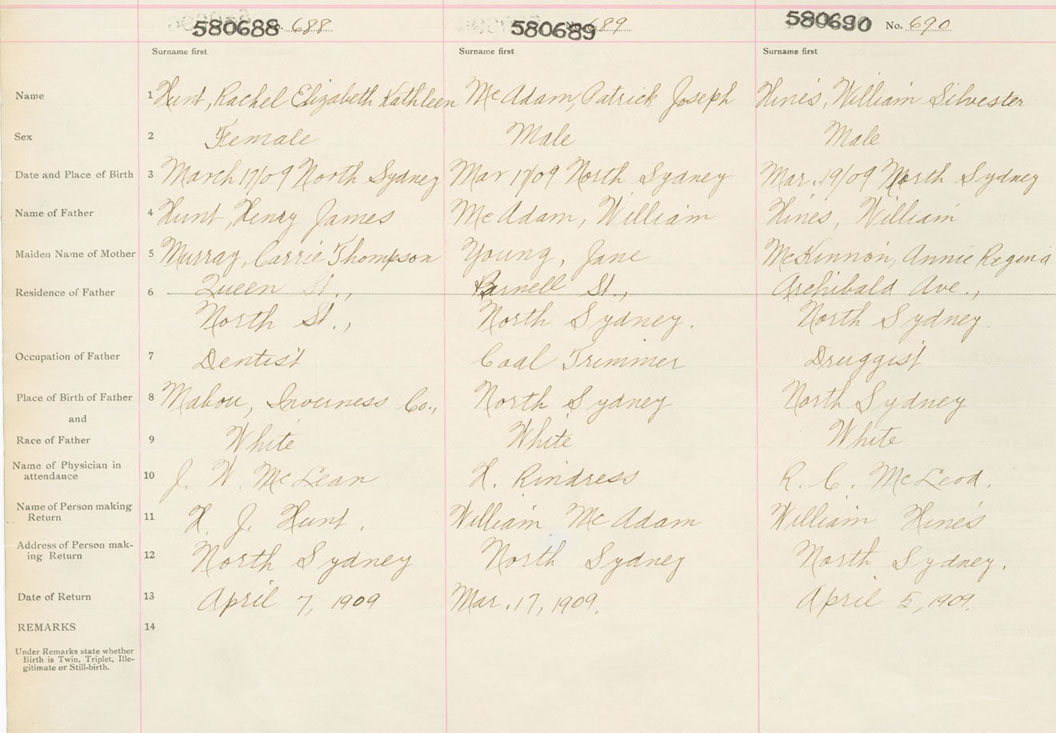 580688 No. 688 580689 No. 689 580690 No. 690
Surname first Surname first Surname first
Name 1 Hunt, Rachel Elizabeth Kathleen McAdam, Patrick Joseph Hines, William Silvester
Sex 2 Female Male Male
Date and Place of Birth 3 March 17/09 North Sydney Mar 17/09 North Sydney Mar. 19/09 North Sydney
Name of Father 4 Hunt, Henry James McAdam, William Hines, William
Maiden Name of Mother 5 Murray, Carrie Thompson Young, Jane McKinnon, Annie Regina
Residence of Father 6 Queen St., St., Archibald Ave.,
North St., North Sydney. North Sydney.
Occupation of Father 7 Dentist Coal Trimmer Druggist
Place of Birth of Father 8 Mabou, Inverness Co., North Sydney North Sydney
and
Race of Father 9 White White White
Name of Physician in
attendance 10 J. W. McLean H. Rindress R. C. McLeod.
Name of Person making
Return 11 H. J. Hunt. William McAdam William Hines
Address of Person mak-
ing Return 12 North Sydney North Sydney North Sydney.
Date of Return 13 April 7, 1909 Mar. 17, 1909. April 5, 1909.
REMARKS 14
Under Remarks state whether
Birth is Twin, Triplet, Ille-
gitimate or Still-birth.